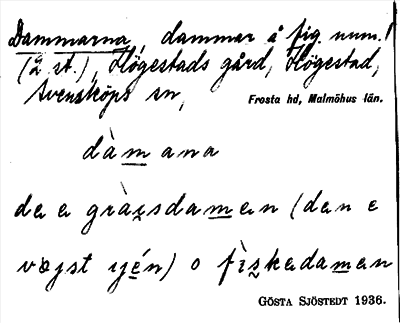 Dammarna, dammar å fig. num. 1
(2 st.), Högestads gård, Högestad,
Svensköps sn,
Frosta hd, Malmöhus län.
dàmana
dea gràisdamen (den e
vøjst ijén) o fìskedamen
GÖSTA SJÖSTEDT 1936.